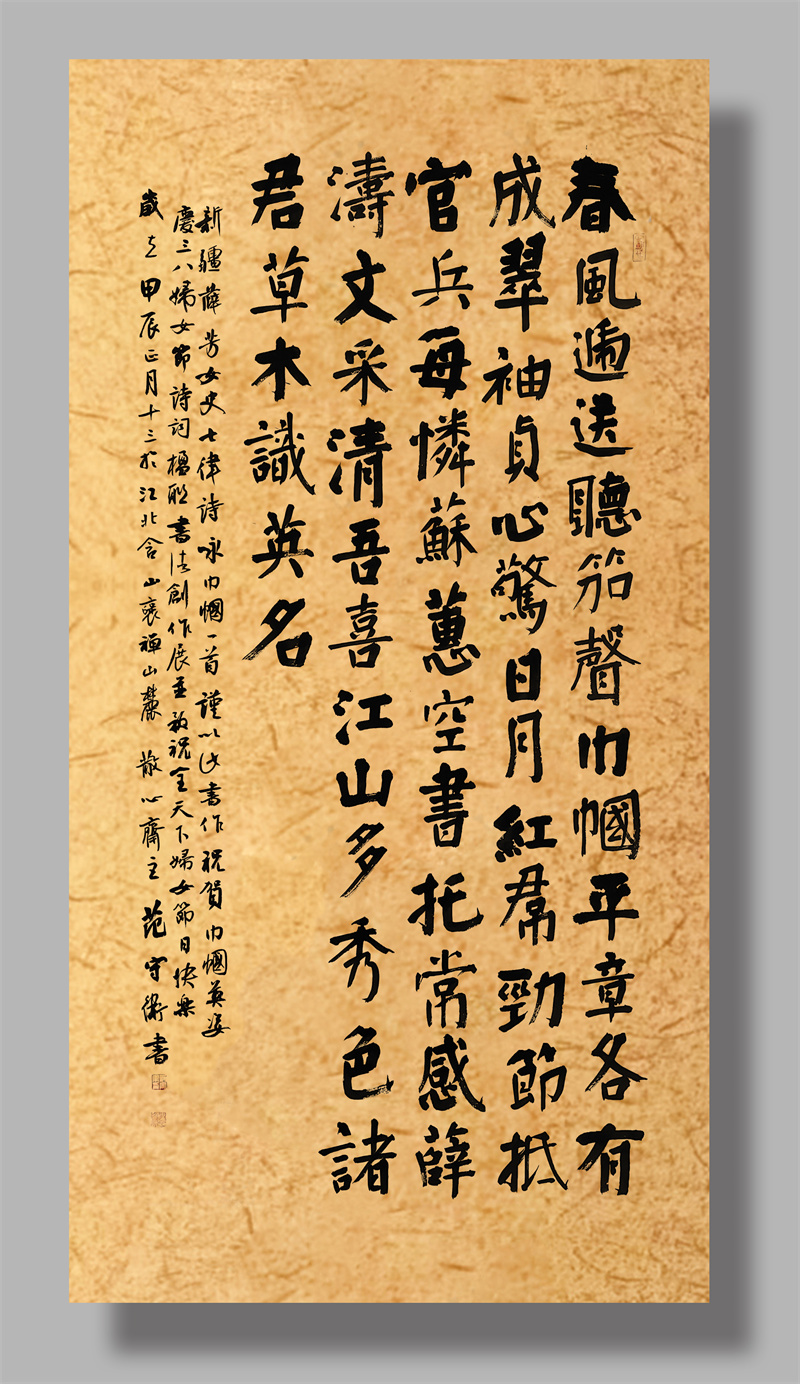 春風遞送聽笳聲巾幗平章各有
成翠袖貞心驚日月紅帬勁節抵
官兵每憐蘇蕙空書托常感薛
濤文采清吾喜江山多秀色諸
君草木識英名
新疆薛芳女史七律詩咏巾幗一首謹以此書作祝賀巾幗英姿
慶三八婦女節詩詞楹聯書法創作展並敬祝全天下婦女節日快樂
歲在甲辰正月十三於江北含山褒禪山麓散心齋主范守衛書